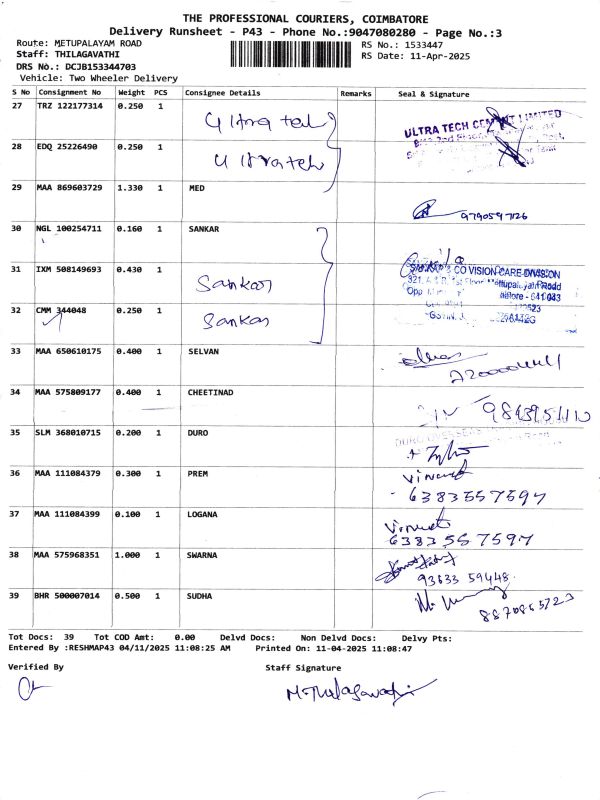 THE PROFESSIONAL COURIERS, COIMBATORE
Delivery Runsheet - P43 - Phone No.:9047080280 - Page No.:3
Route: METUPALAYAM ROAD
Staff: THILAGAVATHI
DRS No.: DCJB153344703
Vehicle: Two Wheeler Delivery
RS No.: 1533447
RS Date: 11-Apr-2025
S No Consignment No Weight PCS Consignee Details Remarks Seal & Signature
27 TRZ 122177314 0.250 1 Ultra tech
ULTRA TECH CEMENT LIMITED
28 EDQ 25226490 0.250 1 Ultratech
29 MAA 869603729 1.330 1 MED 9790597126
30 NGL 100254711 0.160 1 SANKAR
31 IXM 508149693 0.430 1 Sankar
CO VISION CARE DIVISION
32 CMM 344048 0.250 1 Sankar
33 MAA 650610175 0.400 1 SELVAN
34 MAA 575809177 0.400 1 CHEETINAD
35 SLM 368010715 0.200 1 DURO
36 MAA 111084379 0.300 1 PREM Vineeth
6383557597
37 MAA 111084399 0.100 1 LOGANA Vineeth
6383557597
38 MAA 575968351 1.000 1 SWARNA
93633 59448
39 BHR 500007014 0.500 1 SUDHA
8870865723
Tot Docs: 39 Tot COD Amt: 0.00 Delvd Docs: Non Delvd Docs: Delvy Pts:
Entered By :RESHMAP43 04/11/2025 11:08:25 AM Printed On: 11-04-2025 11:08:47
Verified By Staff Signature
M.Thilagavathi